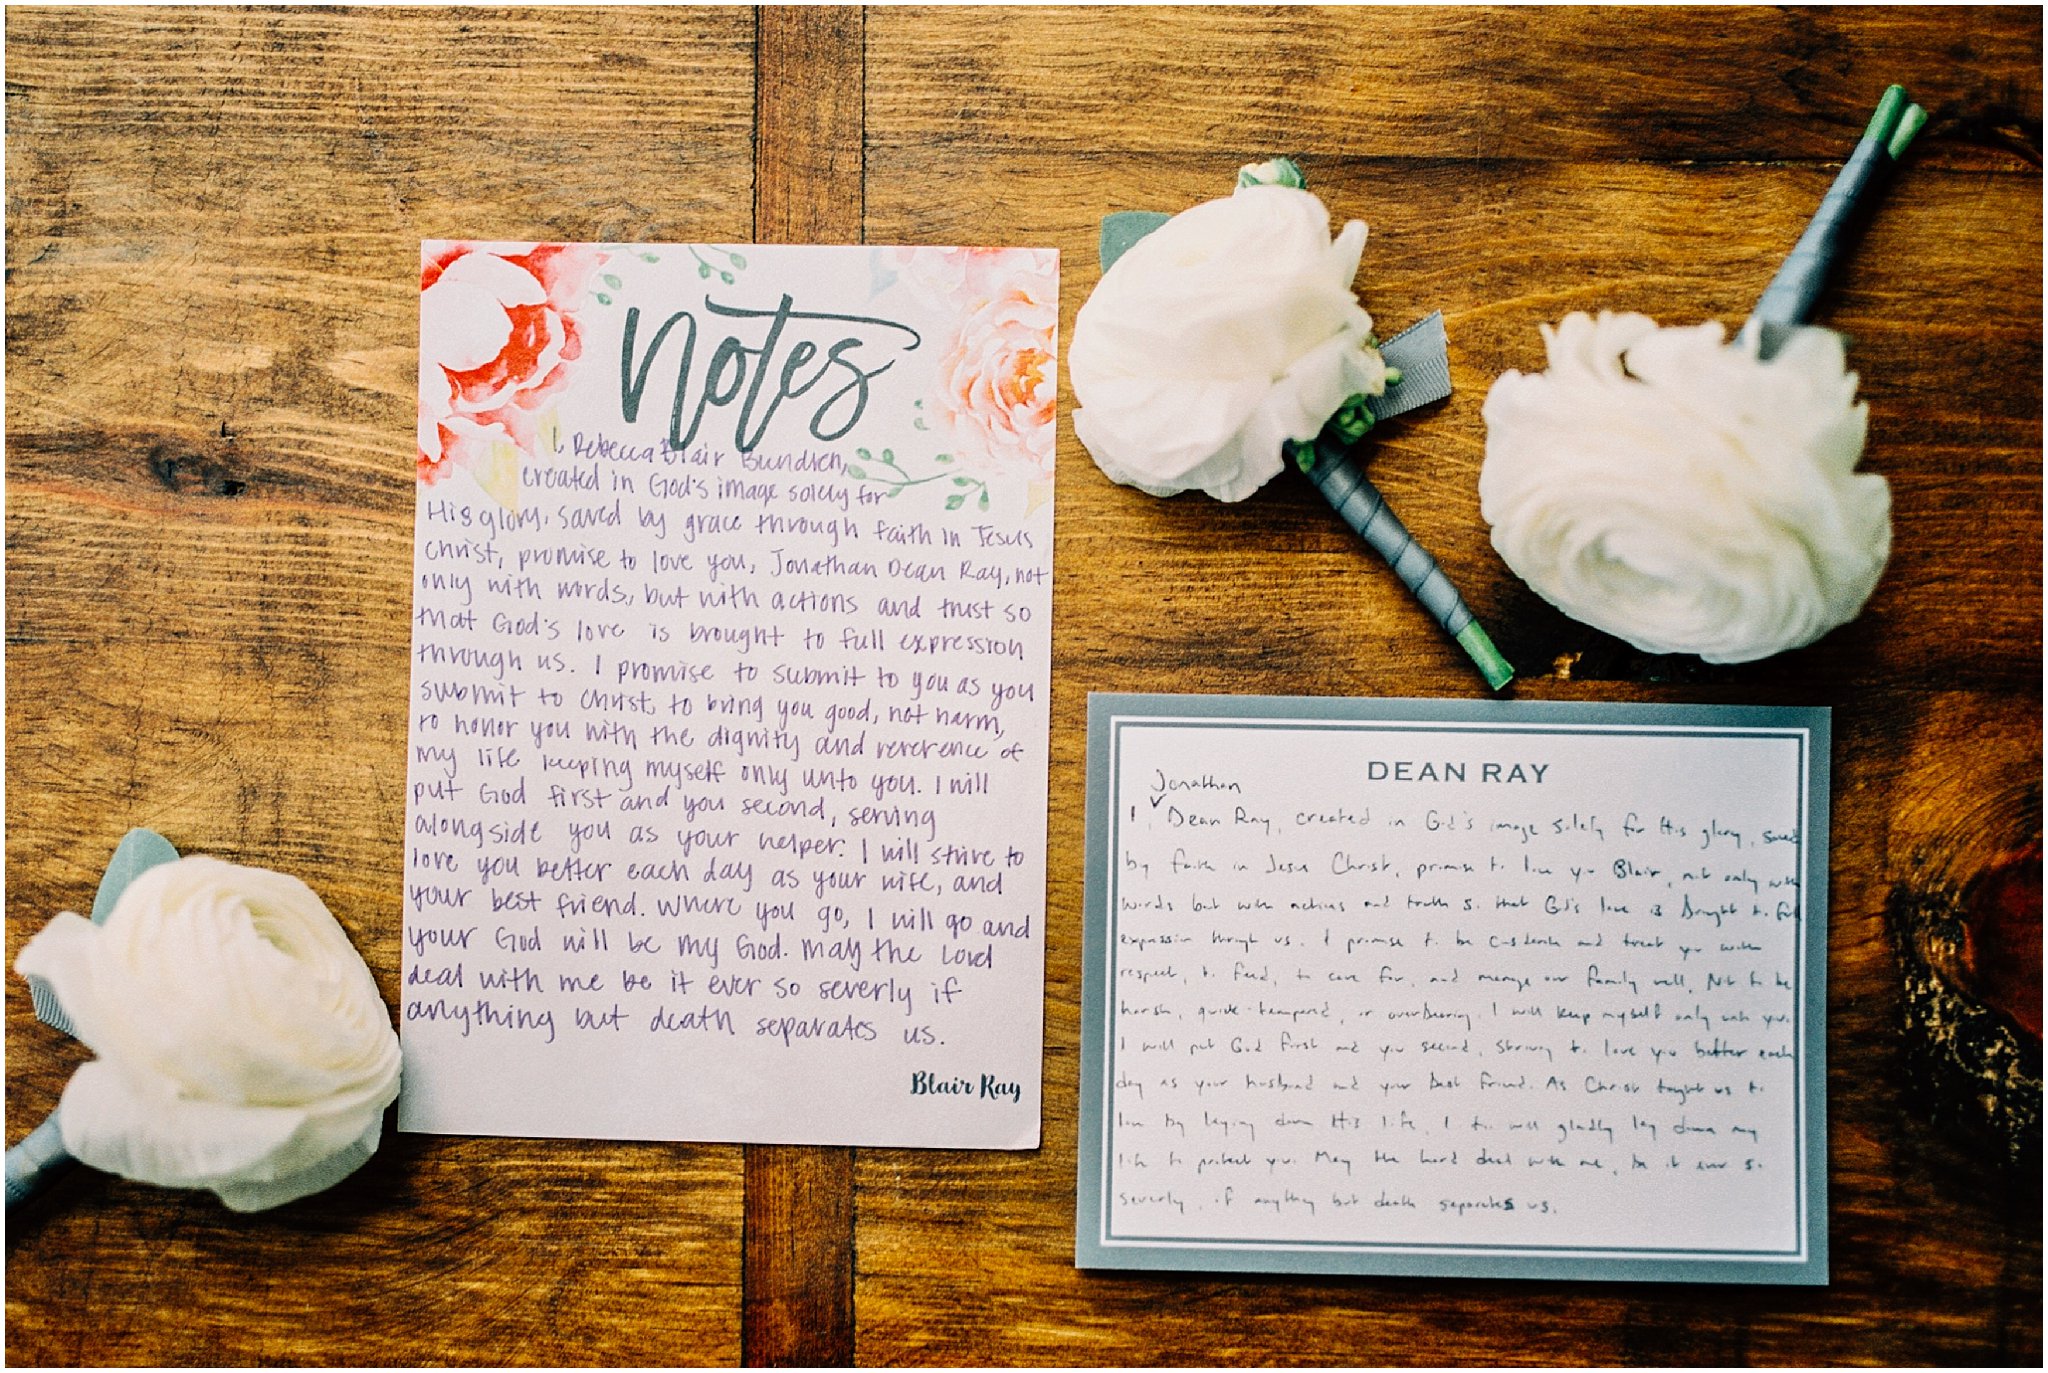 Notes
I, Rebecca Blair Bundren,
created in God's image solely for
His glory, saved by grace through faith in Jesus
Christ, promise to love you, Jonathan Dean Ray, not
only with words, but with actions and trust so
that God's love is brought to full expression
through us. I promise to submit to you as you
submit to Christ, to bring you good, not harm,
to honor you with the dignity and reverence of
my life keeping myself only unto you. I will
put God first and you second, serving
alongside you as your helper. I will strive to
love you better each day as your wife, and
your best friend. Where you go, I will go and
your God will be my God. May the Lord
deal with me be it ever so severly if
anything but death separates us.
Blair Ray
DEAN RAY
Jonathan
I, Dean Ray, created in God's image solely for His glory, saved
by faith in Jesus Christ, promise to love you Blair, not only with
words but with actions and truth so that God's love is brought to full
expression through us. I promise to be considerate and treat you with
respect, to feed, to care for, and manage our family well, Not to be
harsh, quick-tempered, or overbearing. I will keep myself only unto you.
I will put God first and you second, striving to love you better each
day as your husband and your best friend. As Christ taught us to
love by laying down His life, I too will gladly lay down my
life to protect you. May the Lord deal with me, be it ever so
severly, if anything but death separates us.